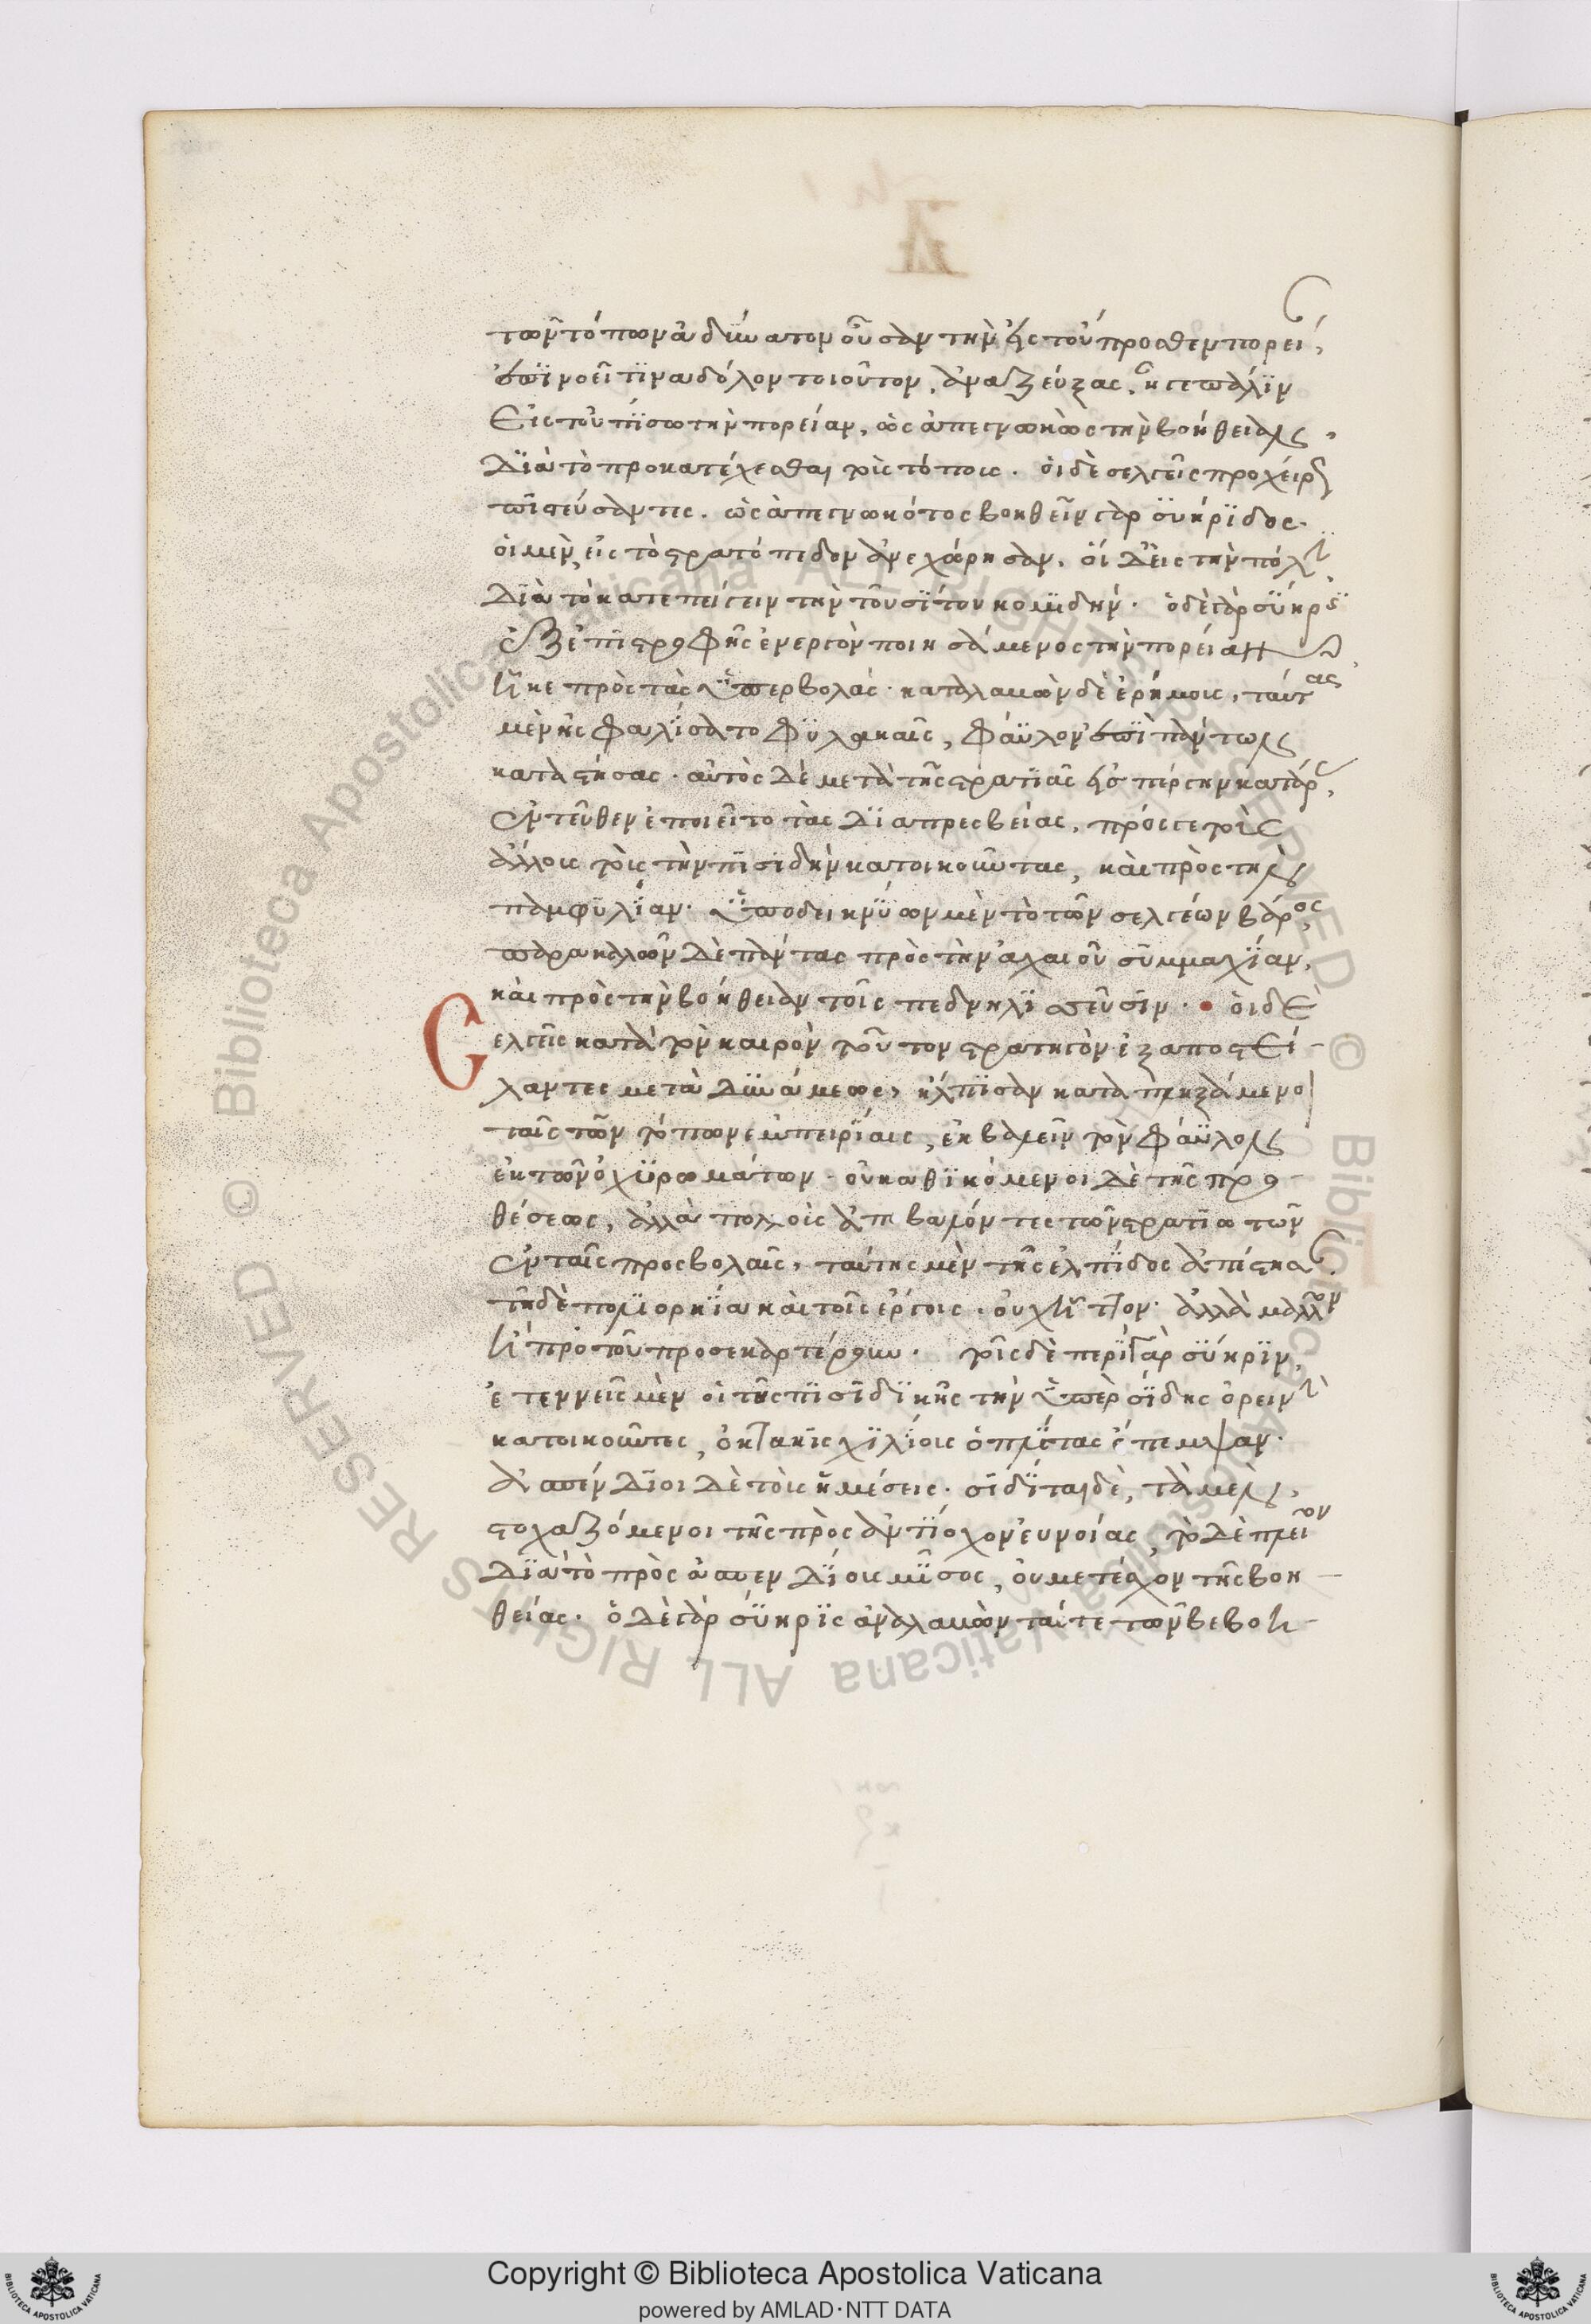 τῶν τόπων ἀδύνατον οὖσαν τὴν εἰς τοὔπροσθεν πορεί,
ἐπϊνοεῖ τϊνα δόλον τοιοῦτον. ἀναζεύξας. ἦγε πάλϊν
Εἰς τοὐπίσω τὴν πορείαν, ὡς ἀπεγνωκὼς τὴν βοήθειαν,
Δϊὰ τὸ προκατέχεσθαι τοὺς τόπους. οἱ δὲ σελγεῖς προχείρ
πιστεύσαντες. ὡς ἀπεγνωκότος βοηθεῖν γαρσυήρϊδος.
οἱ μὲν, εἰς τὸ στρατόπεδον ἀνεχώρησαν. οἵ Δ' εἰς τὴν πόλϊ
Δϊὰ τὸ κατεπείγειν τὴν τοῦ σϊτου κομϊδήν. ὁ δὲ γαρσύηρϊς
ἐξ ἐπϊστροφῆς ἐνεργὸν ποιησάμενος τὴν πορείαν
ἧκε πρὸς τὰς ὑπερβολάς. καταλαβὼν δὲ ἐρήμους, ταύτας
μὲν ἠσφαλίσατο φυλακαῖς, φάϋλον ἐπὶ πάντων
καταστήσας. αὐτὸς Δὲ μετὰ τῆς στρατϊᾶς εἰς πέργην κατάρ,
ἐντεῦθεν ἐποιεῖτο τὰς Δϊαπρεσβείας, πρός τε τοὺς
ἄλλους τοὺς τὴν πϊσιδὴν κατοικοῦντας, καὶ πρὸς τὴν
παμφυλίαν. ὑποδεικνύων μὲν τὸ τῶν σελγέων βάρος,
παρακαλῶν Δὲ πάντας πρὸς τὴν ἀχαιοῦ συμμαχίαν,
καὶ πρὸς τὴν βοήθειαν τοῖς πεδνηλϊσσεῦσϊν. οἱ δὲ
Σελγεῖς κατὰ τὸν καιρὸν τοῦτον στρατηγὸν ἐξαποστεί-
λαντες μετὰ Δυνάμεως, ἤλπϊσαν καταπληξάμενοι
ταῖς τῶν τόπων ἐμπειρίαις, ἐκβαλεῖν τὸν φάϋλον
ἐκ τῶν ὀχϋρωμάτων. οὐ καθϊκόμενοι Δὲ τῆς προ-
θέσεως, ἀλλὰ πολλοὺς ἀποβαλόντες τῶν στρατϊωτῶν
ἐν ταῖς προσβολαῖς, ταύτης μὲν τῆς ἐλπίδος ἀπέστησα
τῇ δὲ πολϊορκία καὶ τοῖς ἔργοις. οὐχ ἧττον. ἀλλὰ μᾶλλον
ἢ πρὸ τοῦ προσεκαρτέρουν. τοῖς δὲ περὶ γαρσύηρϊν,
ἐτεννεῖς μὲν οἱ τῆς πϊσϊδϊκῆς τὴν ὑπὲρ σίδης ὀρεινὴ
κατοικοῦντες, ὀκτακισχϊλίους ὁπλίτας ἔπεμψαν.
ἀσπένδϊοι Δὲ τοὺς ἡμίσεις. σϊδῖται δὲ, τὰ μὲν,
στοχαζόμενοι τῆς πρὸς ἀντίοχον εὐνοίας, τὸ Δὲ πλεῖον
Δϊὰ τὸ πρὸς ἀσπενΔίους μῖσος, οὐ μετέσχον τῆς βοη-
θείας. ὁ Δὲ γαρσύηρϊς ἀναλαβὼν τάς τε τῶν βεβοη-